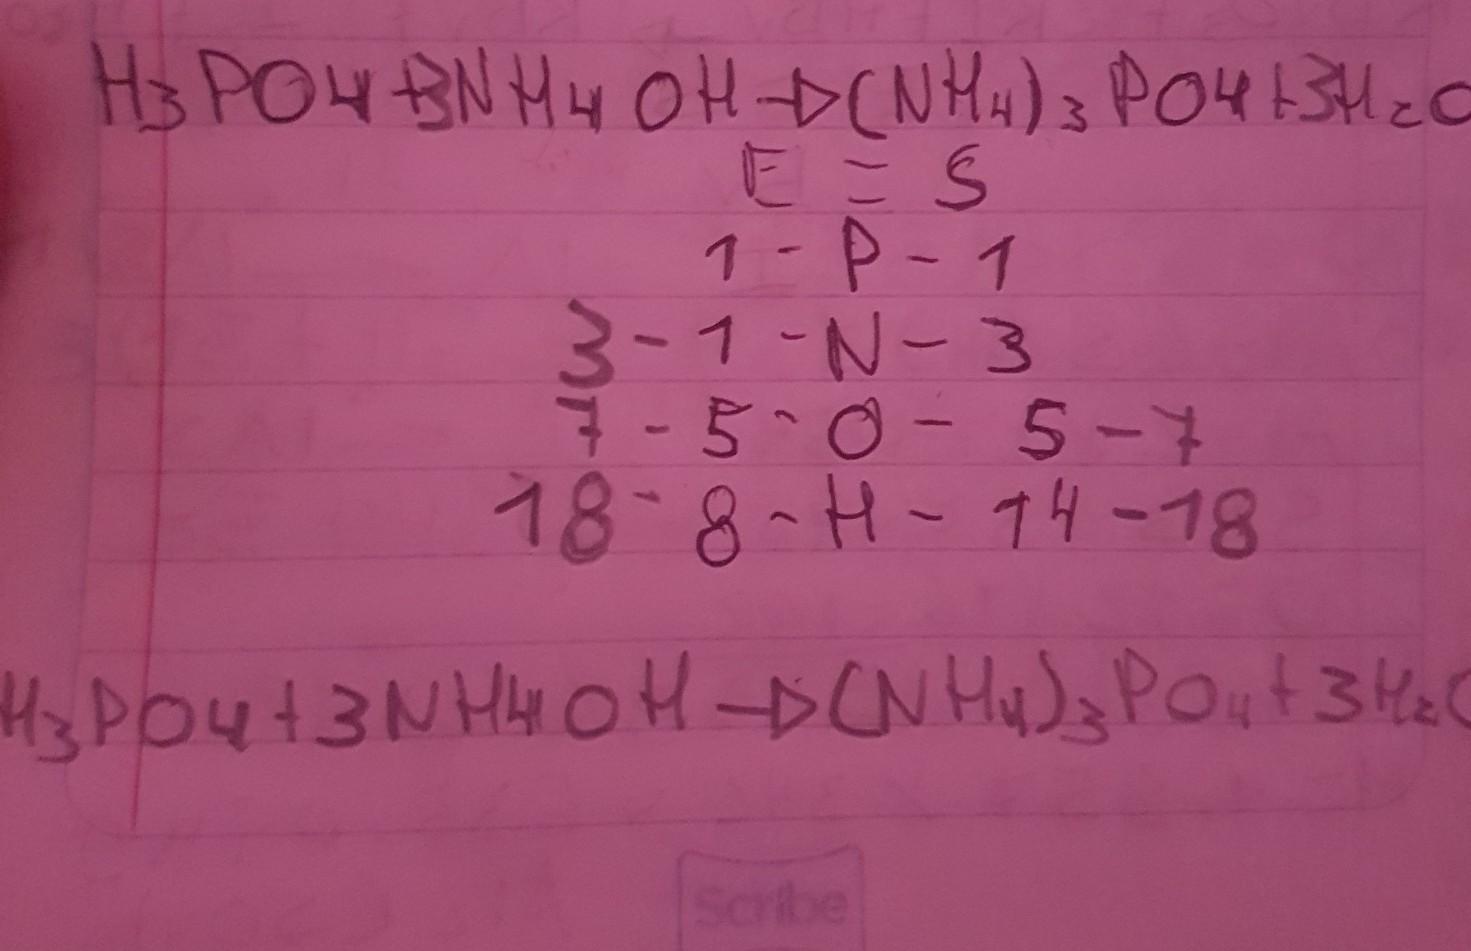 H3PO4+3NH4OH→(NH4)3PO4+3H2O
E = S
1 - P - 1
3 - 1 - N - 3
7 - 5 - O - 5 - 7
18 - 8 - H - 14 - 18
H3PO4+3NH4OH→(NH4)3PO4+3H2O
Scribe